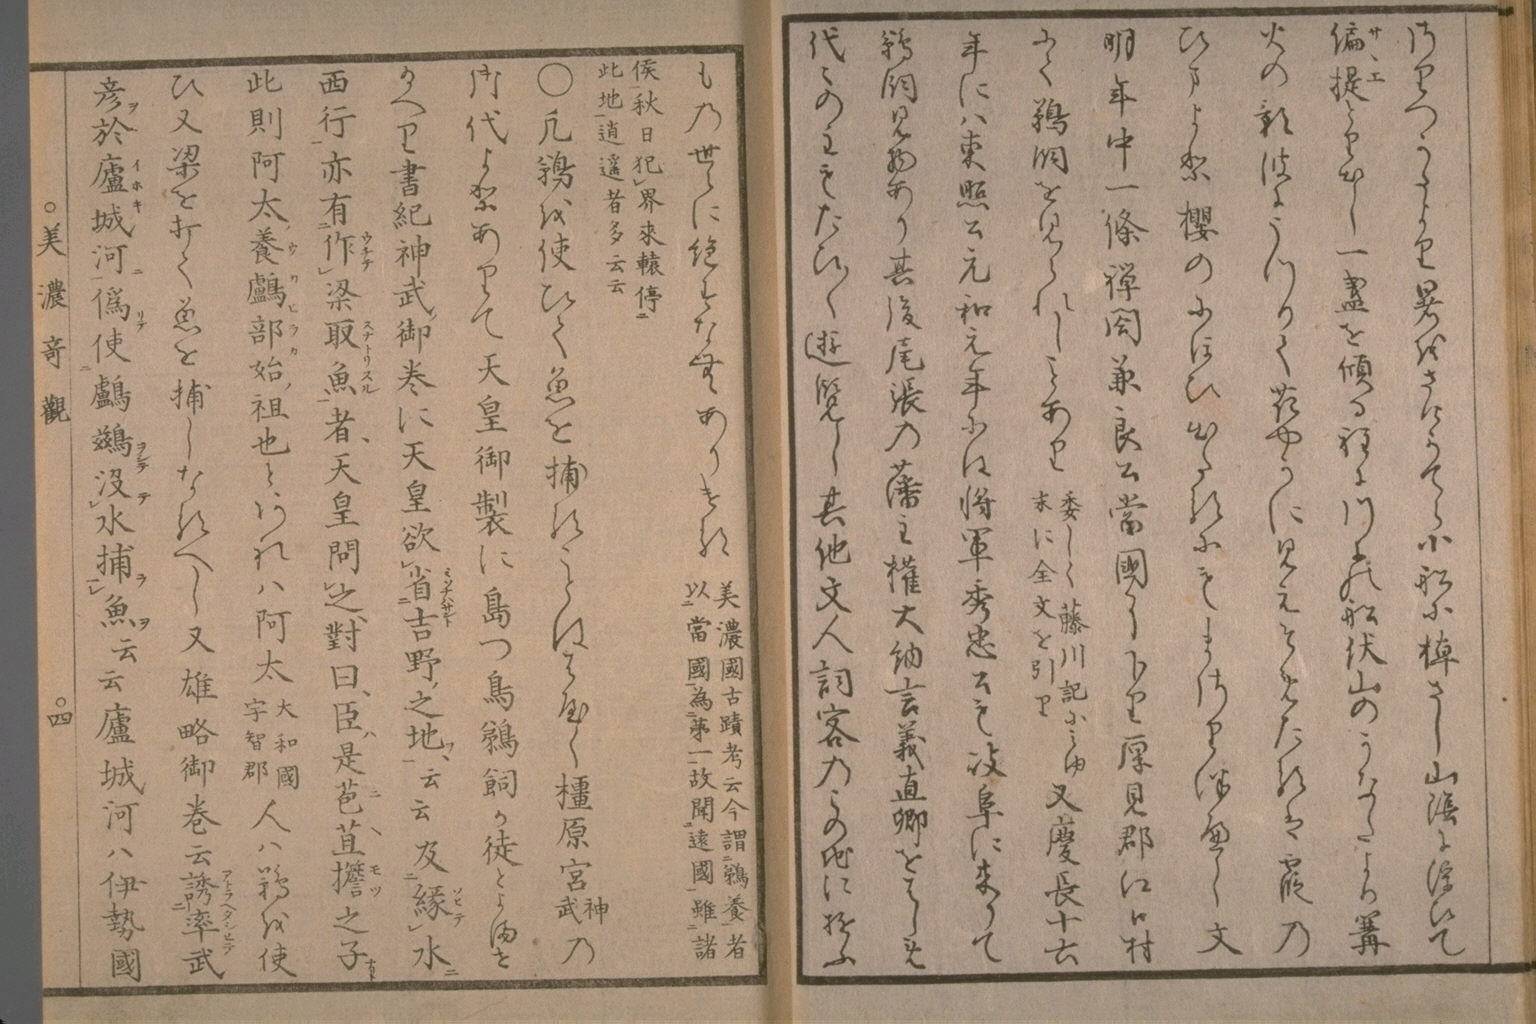 偏提とり出し一盞を傾る程に川上の船伏山のうなたより篝
火の影波にうつりて花やかに見えそめたるは霞の
ひまより櫻のにほひ出たるにもまさりぬべし文
明年中一條禅閤兼良公當國に下り厚見郡江口村
にて鵜飼を見られしことあり
委しく藤川記にみゆ
末に全文を引り
又慶長十六
年には東照公元和元年には将軍秀忠公も岐阜に来りて
鵜飼見物あり其後尾張の藩主権大納言義直卿をはしめ
代々の主もたひたひ遊覧し其他文人詞客のこの地に遊ふ
もの世々に絶ることなむありける
美濃國古蹟考云今謂鵜養者
以當國為第一故聞遠國雖諸
侯秋日犯界來轅停
此地逍遥者多云云
○凡鵜を使ひて魚を捕ることははやく橿原宮神武の
御代よりありて天皇御製に島つ鳥鵜飼か徒とよませ
給へり書紀神武御巻に天皇欲省吉野之地云云及縁水
西行亦有作梁取魚者天皇問之對曰臣是苞苴擔之子
此則阿太養鸕部始祖也とあれハ阿太
大和國
宇智郡
人ハ鵜を使
ひ又梁を打て魚を捕しなるへし又雄略御巻云誘率武
彦於廬城河偽使鸕鷀没水捕魚云云廬城河ハ伊勢國
美濃奇觀
四